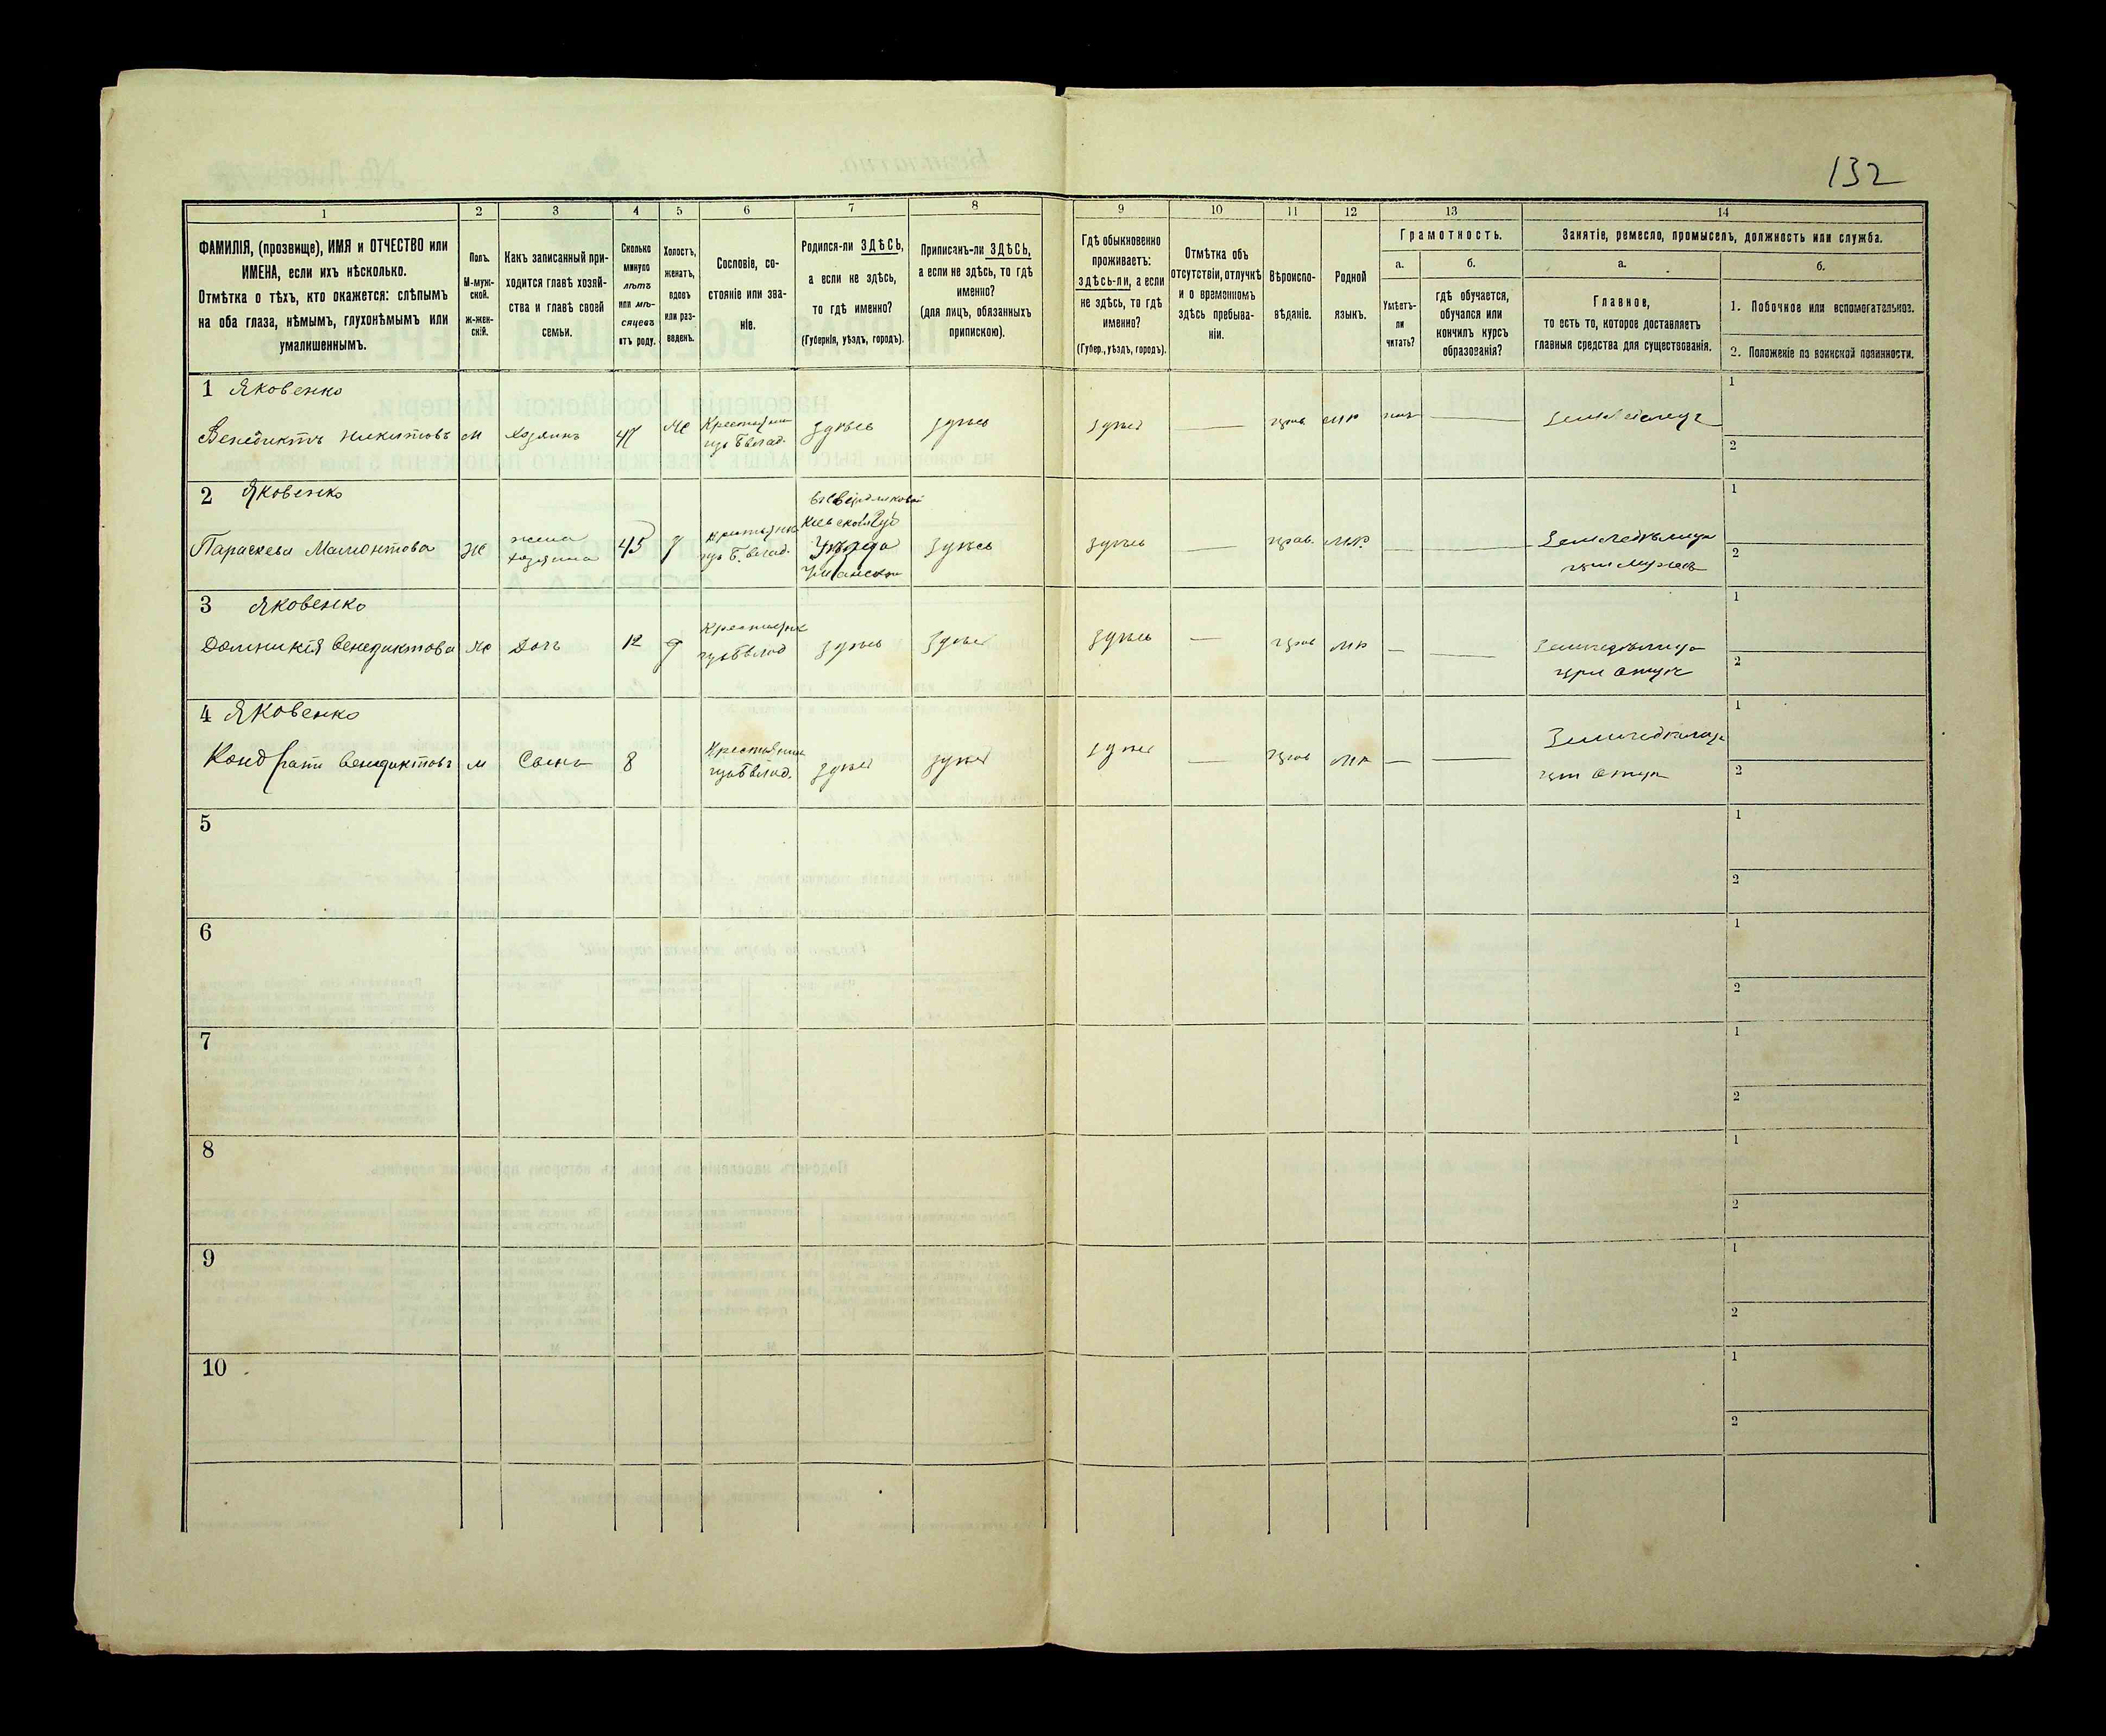 132
1
2
3
4
5
6
7
8
9
10
11
12
13
14
ФАМИЛІЯ, (прозвище), ИМЯ и ОТЧЕСТВО или
ИМЕНА, если ихъ нѣсколько.
Отмѣтка о тѣхъ, кто окажется: слѣпымъ
на оба глаза, нѣмымъ, глухонѣмымъ или
умалишеннымъ.
Полъ.
М-муж-
ской.
Ж-жен-
скій.
Какъ записанный при-
ходится главѣ хозяй-
ства и главѣ своей
семьи.
Сколько
минуло
лѣтъ
или мѣ-
сяцевъ
отъ роду.
Холостъ,
женатъ,
вдовъ
или раз-
веденъ.
Сословіе, со-
стояніе или зва-
ніе.
Родился-ли ЗДѢСЬ,
а если не здѣсь,
то гдѣ именно?
(Губернія, уѣздъ, городъ).
Приписанъ-ли ЗДѢСЬ,
а если не здѣсь, то гдѣ
именно?
(для лицъ, обязанныхъ
припискою).
Гдѣ обыкновенно
проживаетъ:
здѣсь-ли, а если
не здѣсь, то гдѣ
именно?
(Губер., уѣздъ, городъ).
Отмѣтка объ
отсутствіи, отлучкѣ
и о временномъ
здѣсь пребыва-
ніи.
Вѣроиспо-
вѣданіе.
Родной
языкъ.
Грамотность.
а.
Умѣетъ-
ли
читать?
б.
гдѣ обучается,
обучался или
кончилъ курсъ
образованія?
Занятіе, ремесло, промыселъ, должность или служба.
а.
Главное,
то есть то, которое доставляетъ
главныя средства для существованія.
б.
1. Побочное или вспомогательное.
2. Положеніе по воинской повинности.
1 Яковенко
Венедиктъ Никитовъ м Хозяинъ 47 Крестьянин здѣсь здѣсь здѣсь прав мр
1
2
2 Яковенко
Параскева Мамонтова ж жена хозяина 45 Крестьянка Киевской Губ Уѣзда здѣсь здѣсь прав. мр.
1
2
3 Яковенко
Домникія Венедиктова ж Дочь 12 здѣсь здѣсь здѣсь прав мр
1
2
4 Яковенко
Кондрати Венедиктовъ м Сынъ 8 Крестьянин здѣсь здѣсь здѣсь прав мр
1
2
5
1
2
6
1
2
7
1
2
8
1
2
9
1
2
10
1
2